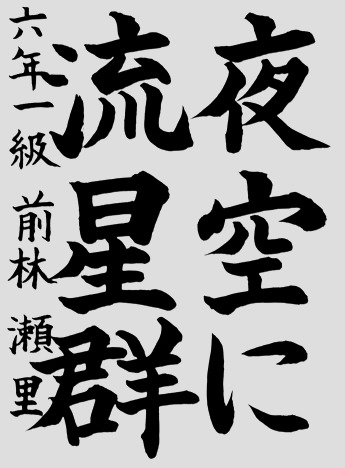 夜空に
流星群
六年一級 前林 瀬里